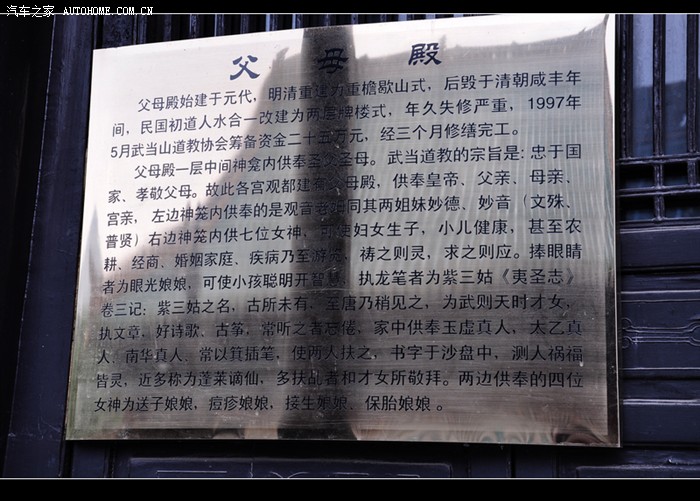 汽车之家 AUTOHOME.COM.CN
父母殿
父母殿始建于元代，明清重建为重檐歇山式，后毁于清朝咸丰年
间，民国初道人水合一改建为两层牌楼式，年久失修严重，1997年
5月武当山道教协会筹备资金二十五万元，经三个月修缮完工。
父母殿一层中间神龛内供奉圣父圣母。武当道教的宗旨是：忠于国
家、孝敬父母。故此各宫观都建有父母殿，供奉皇帝、父亲、母亲、
宫亲，左边神笼内供奉的是观音老姆同其两姐妹妙德、妙音（文殊、
普贤）右边神笼内供七位女神，可使妇女生子，小儿健康，甚至农
耕、经商、婚姻家庭、疾病乃至游冥，祷之则灵，求之则应。捧眼睛
者为眼光娘娘，可使小孩聪明开智慧，执龙笔者为紫三姑《夷圣志》
卷三记：紫三姑之名，古所未有，至唐乃稍见之，为武则天时才女，
执文章，好诗歌、古筝，常听之者忘倦，家中供奉玉虚真人，太乙真
人、南华真人、常以箕插笔，使两人扶之，书字于沙盘中，测人祸福
皆灵，近多称为蓬莱谪仙，多扶乩者和才女所敬拜。两边供奉的四位
女神为送子娘娘，痘疹娘娘，接生娘娘、保胎娘娘。